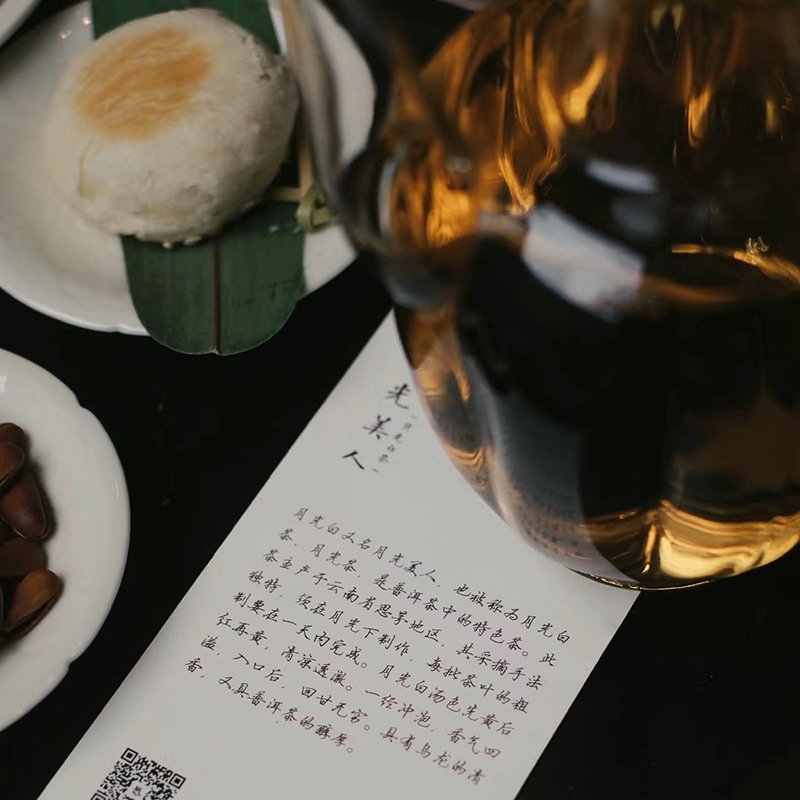 光美人
月光白茶
月光白又名月光美人，也被称为月光白
茶、月光茶，是普洱茶中的特色茶。此
茶主产于云南省思茅地区，其采摘手法
独特，须在月光下制作，每批茶叶的粗
制要在一天内完成。月光白汤色先黄后
红再黄，清凉透澈。一经冲泡，香气四
溢，入口后，回甘无穷。具有乌龙的清
香，又具普洱茶的醇厚。